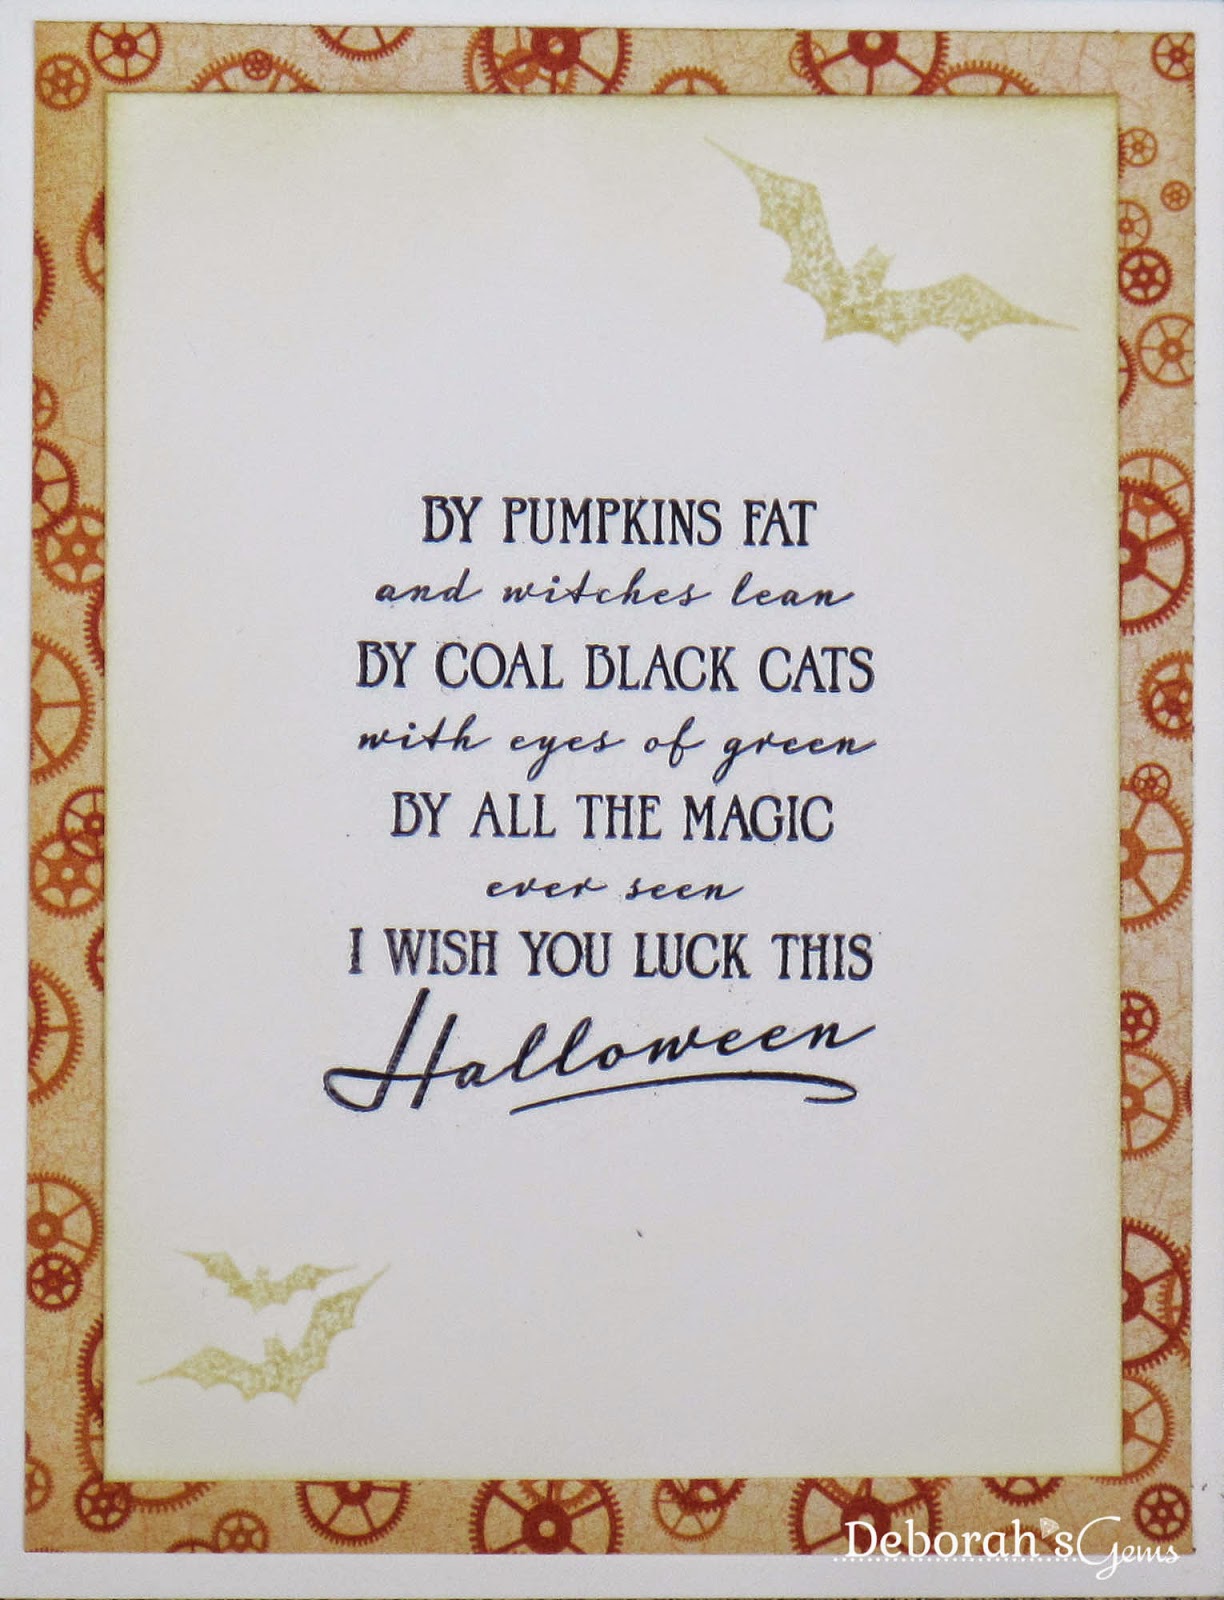 BY PUMPKINS FAT
and witches lean
BY COAL BLACK CATS
with eyes of green
BY ALL THE MAGIC
ever seen
I WISH YOU LUCK THIS
Halloween
Deborah's Gems